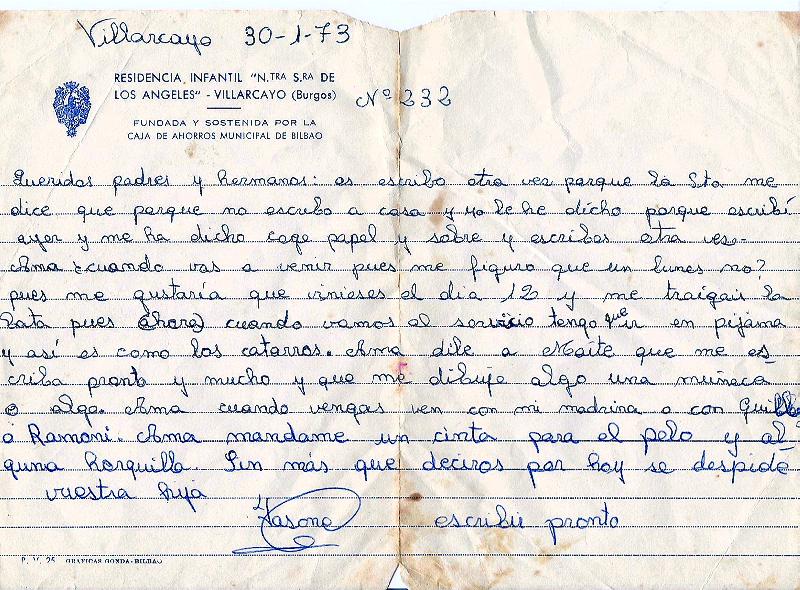 Villarcayo 30-1-73
RESIDENCIA INFANTIL "N.TRA S.RA DE
LOS ANGELES" - VILLARCAYO (Burgos)
Nº 232
FUNDADA Y SOSTENIDA POR LA
CAJA DE AHORROS MUNICIPAL DE BILBAO
Queridos padres y hermanos: os escribo otra vez porque la Sta me
dice que porque no escribo a casa y yo le he dicho porque escribí
ayer y me ha dicho coge papel y sobre y escribes otra vez.
Ama ¿cuando vas a venir pues me figuro que un lunes no?
pues me gustaría que vinieses el día 12 y me traigais la
bata pues ahora cuando vamos al servicio tengo que ir en pijama
y así es como los catarros. Ama dile a Maite que me es
criba pronto y mucho y que me dibuje algo una muñeca
o algo. Ama cuando vengas ven con mi madrina o con Guille
o Ramoni. Ama mandame un cinta para el pelo y al
guna horquilla. Sin más que deciros por hoy se despide
vuestra hija
Itasone escribir pronto
P. V. 25 GRAFICAS GONDA-BILBAO